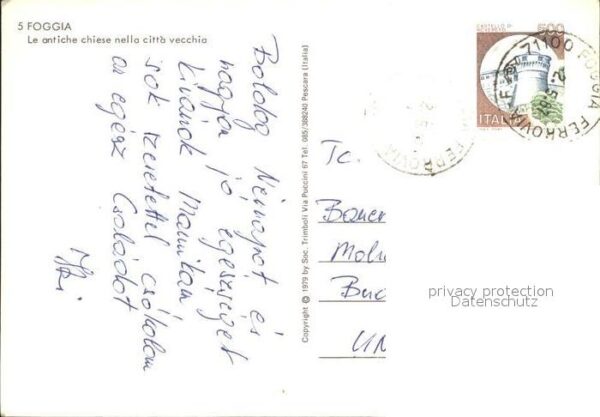 5 FOGGIA
Le antiche chiese nella città vecchia
Boldog Névnapot és
nagyon jó egészséget
kívánok Mamikám
sok szeretettel csókolom
az egész Családot
Copyright © 1979 by Soc. Trimboli Via Puccini 67 Tel. 085/388240 Pescara (Italia)
CASTELLO DI
500
ITALIA
71100 FOGGIA FERROVIA
FERROVIA
Tc.
Bauer
Moln
Bud
UN
privacy protection
Datenschutz